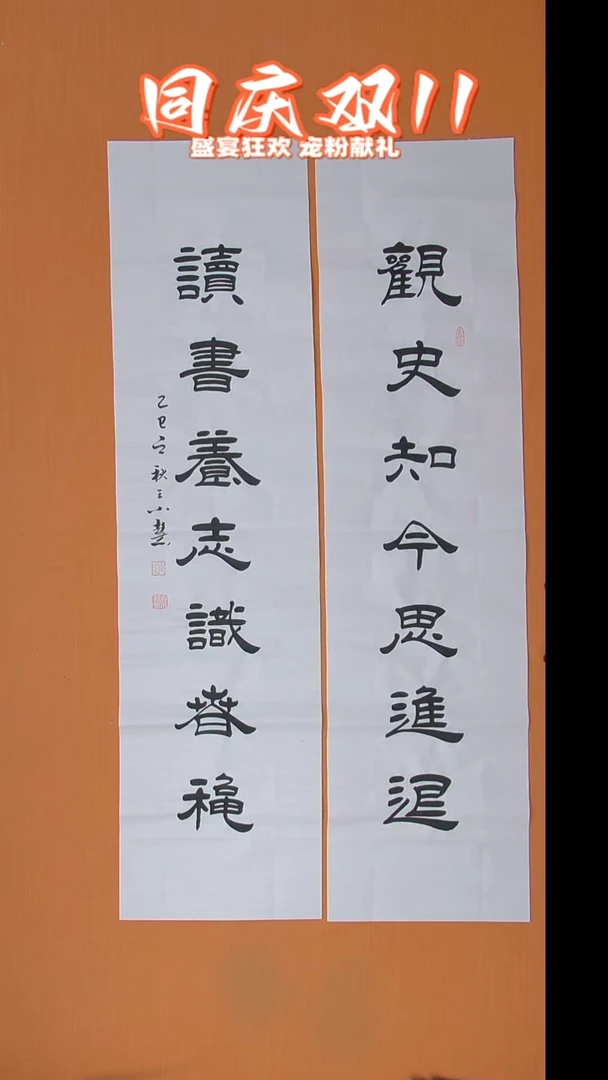 同庆双11
盛宴狂欢 宠粉献礼
觀史知今思進退
讀書養志識春穐
乙巳之秋